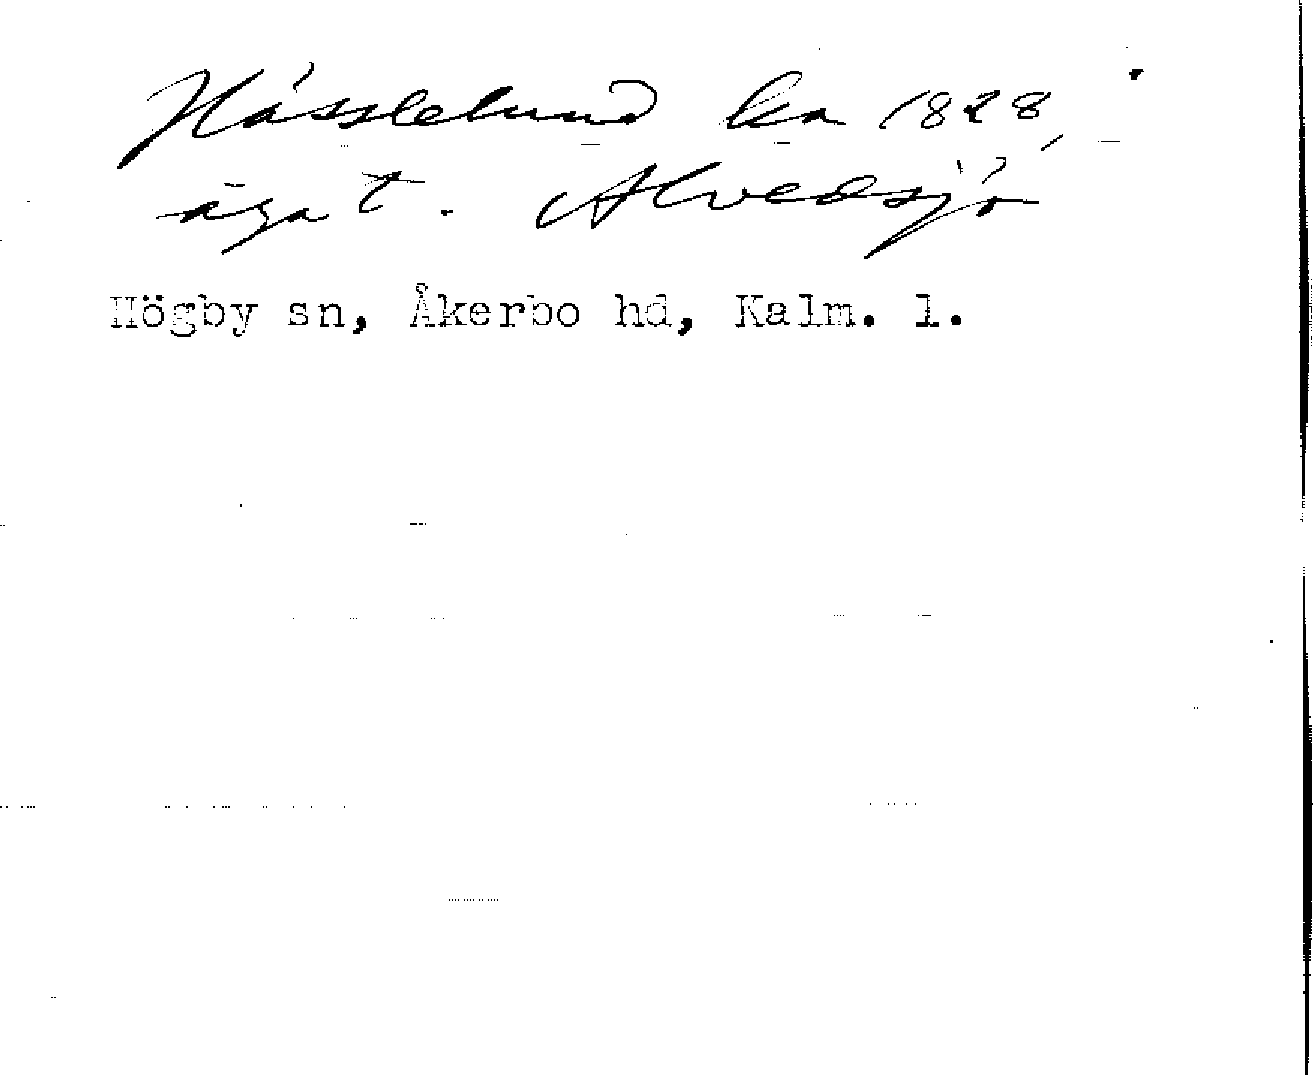 Hässlelund ka 1828,
äga t. Alvedsjö
Högby sn, Åkerbo hd, Kalm. l.